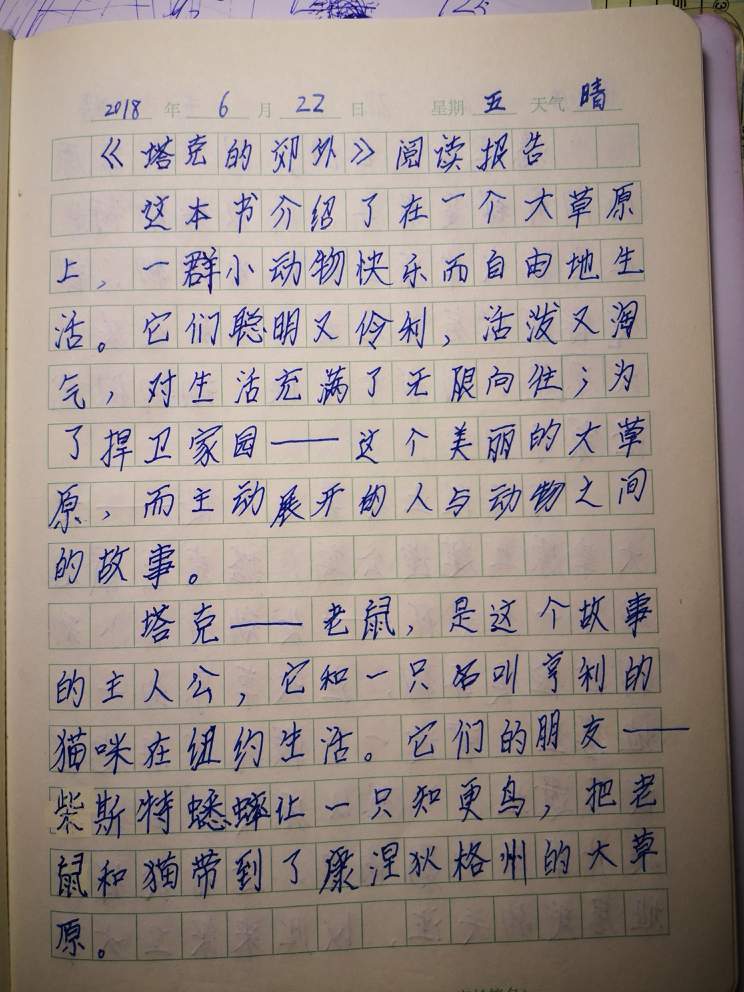 2018 年 6 月 22 日 星期 五 天气 晴
《塔克的郊外》阅读报告
这本书介绍了在一个大草原
上，一群小动物快乐而自由地生
活。它们聪明又伶利，活泼又淘
气，对生活充满了无限向往；为
了捍卫家园——这个美丽的大草
原，而主动展开的人与动物之间
的故事。
塔克——老鼠，是这个故事
的主人公，它和一只名叫亨利的
猫咪在纽约生活。它们的朋友——
柴斯特蟋蟀让一只知更鸟，把老
鼠和猫带到了康涅狄格州的大草
原。